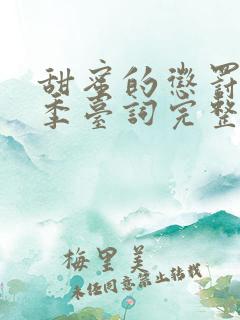 甜蜜的懲罰
季臺詞完整
梅里美
未任同意禁止转载